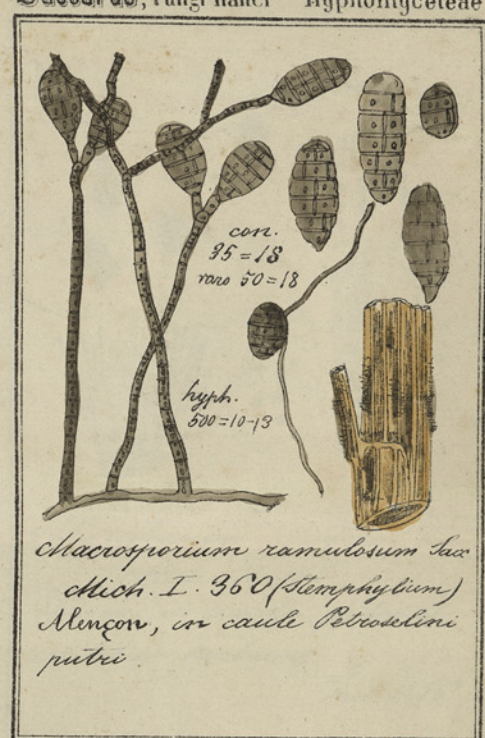 Saccardo, Fungi italici Hyphomyceteae
con.
35=18
raro 50=18
hyph.
500=10-13
Macrosporium ramulosum Sacc
Mich. I. 360 (Stemphylium)
Alençon, in caule Petroselini
putri.